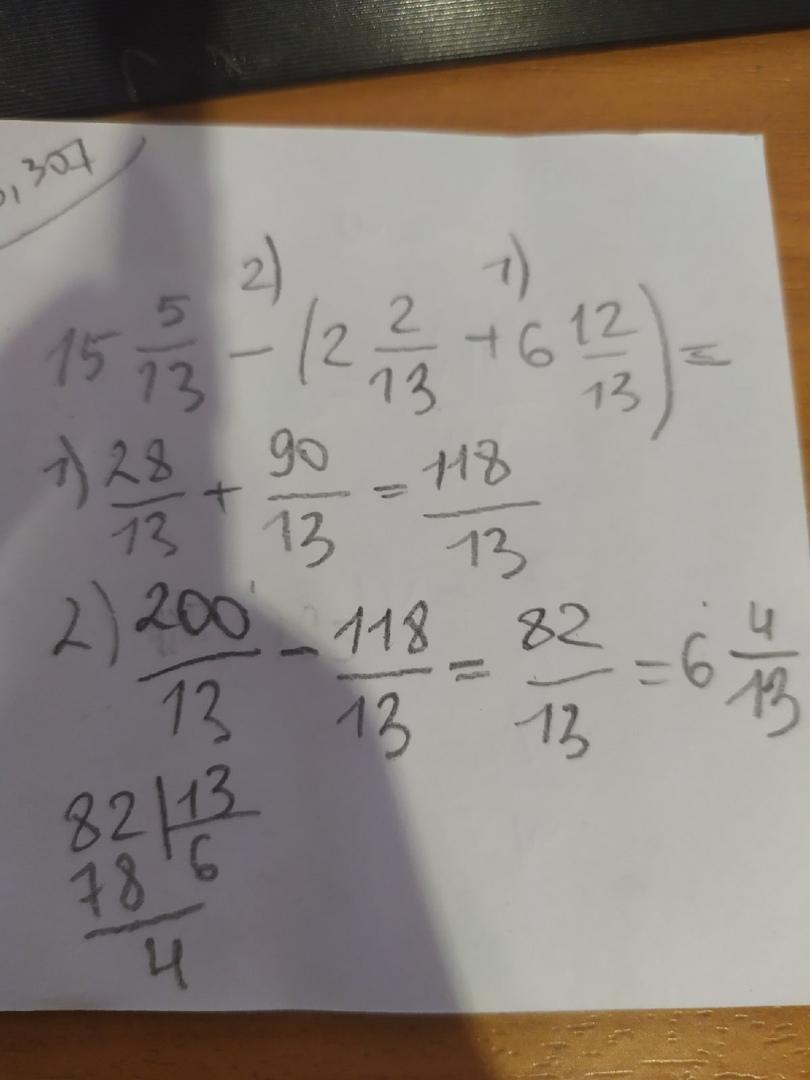 ,307
2) 1)
15 5/13 - (2 2/13 + 6 12/13) =
1) 28/13 + 90/13 = 118/13
2) 200/13 - 118/13 = 82/13 = 6 4/13
82 | 13
78 6
4